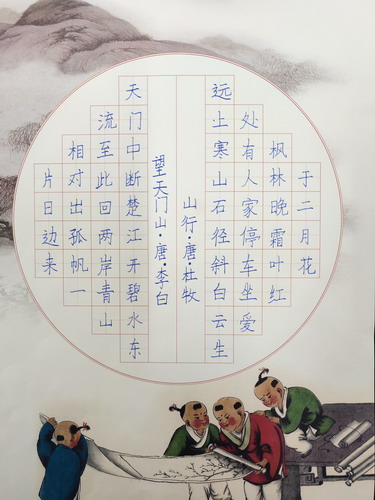 山行·唐·杜牧
远上寒山石径斜白云生
处有人家停车坐爱
枫林晚霜叶红
于二月花
望天门山·唐·李白
天门中断楚江开碧水东
流至此回两岸青山
相对出孤帆一
片日边来